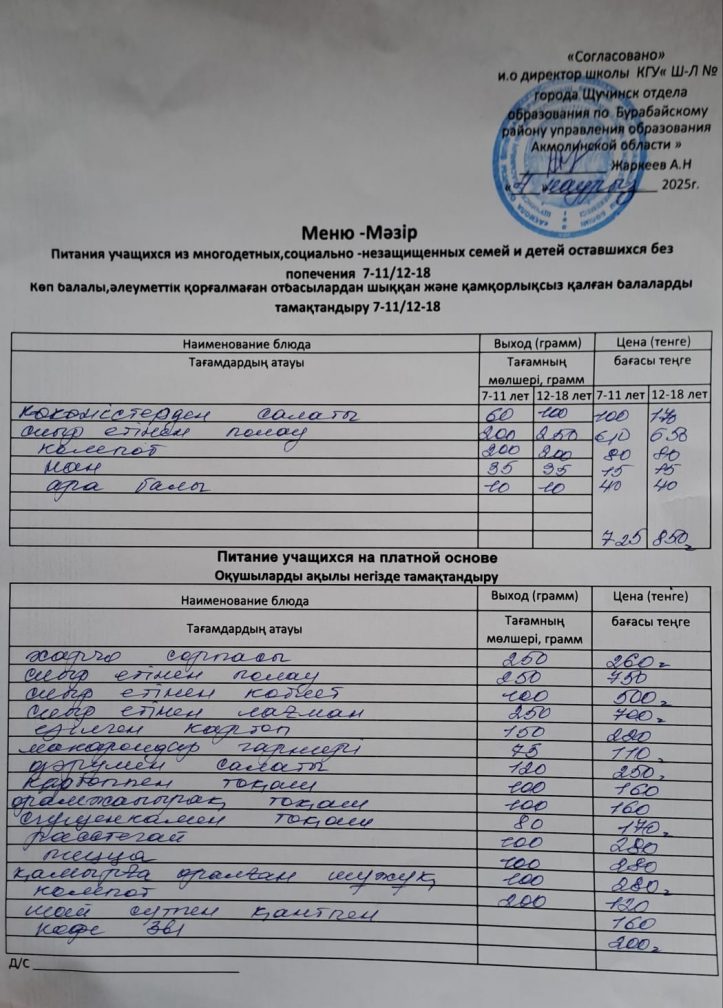 «Согласовано»
и.о директор школы КГУ« Ш-Л №
города Щучинск отдела
образования по Бурабайскому
району управления образования
Акмолинской области »
Жаркеев А.Н
« 7 » наурыз 2025г.
Меню -Мәзір
Питания учащихся из многодетных,социально -незащищенных семей и детей оставшихся без
попечения 7-11/12-18
Көп балалы,әлеуметтік қорғалмаған отбасылардан шыққан және қамқорлықсыз қалған балаларды
тамақтандыру 7-11/12-18
Наименование блюда Выход (грамм) Цена (тенге)
Тағамдардың атауы Тағамның бағасы теңге
мөлшері, грамм
7-11 лет 12-18 лет 7-11 лет 12-18 лет
көкөністерден салаты 60 100 100
сиыр етінен полау 200 250
компот 200 200 80 80
нан 35 35 15 15
ара балы 10 10 40 40
725 850
Питание учащихся на платной основе
Оқушыларды ақылы негізде тамақтандыру
Наименование блюда Выход (грамм) Цена (тенге)
Тағамдардың атауы Тағамның бағасы теңге
мөлшері, грамм
харчо сорпасы 250 260
сиыр етінен полау 250 750
сиыр етінен котлет 100 500
сиыр етінен лағман 250 700
езілген картоп 150
макарондар гарнері 75 110
дәрумен салаты 120 250
картоппен тоқаш 100 160
орамжапырақ тоқаш 100 160
сгущенкамен тоқаш 80 170
расстегай 100 280
пицца 100 280
қамырға оралған шұжық 100 280
компот 200 120
шай сүтпен қантпен 160
кофе 3в1 200
Д/С